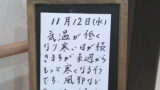 11月12日(水)
気温が低く
なり寒い日が続
きますが来週から
もっと寒くなる行
です。風邪など